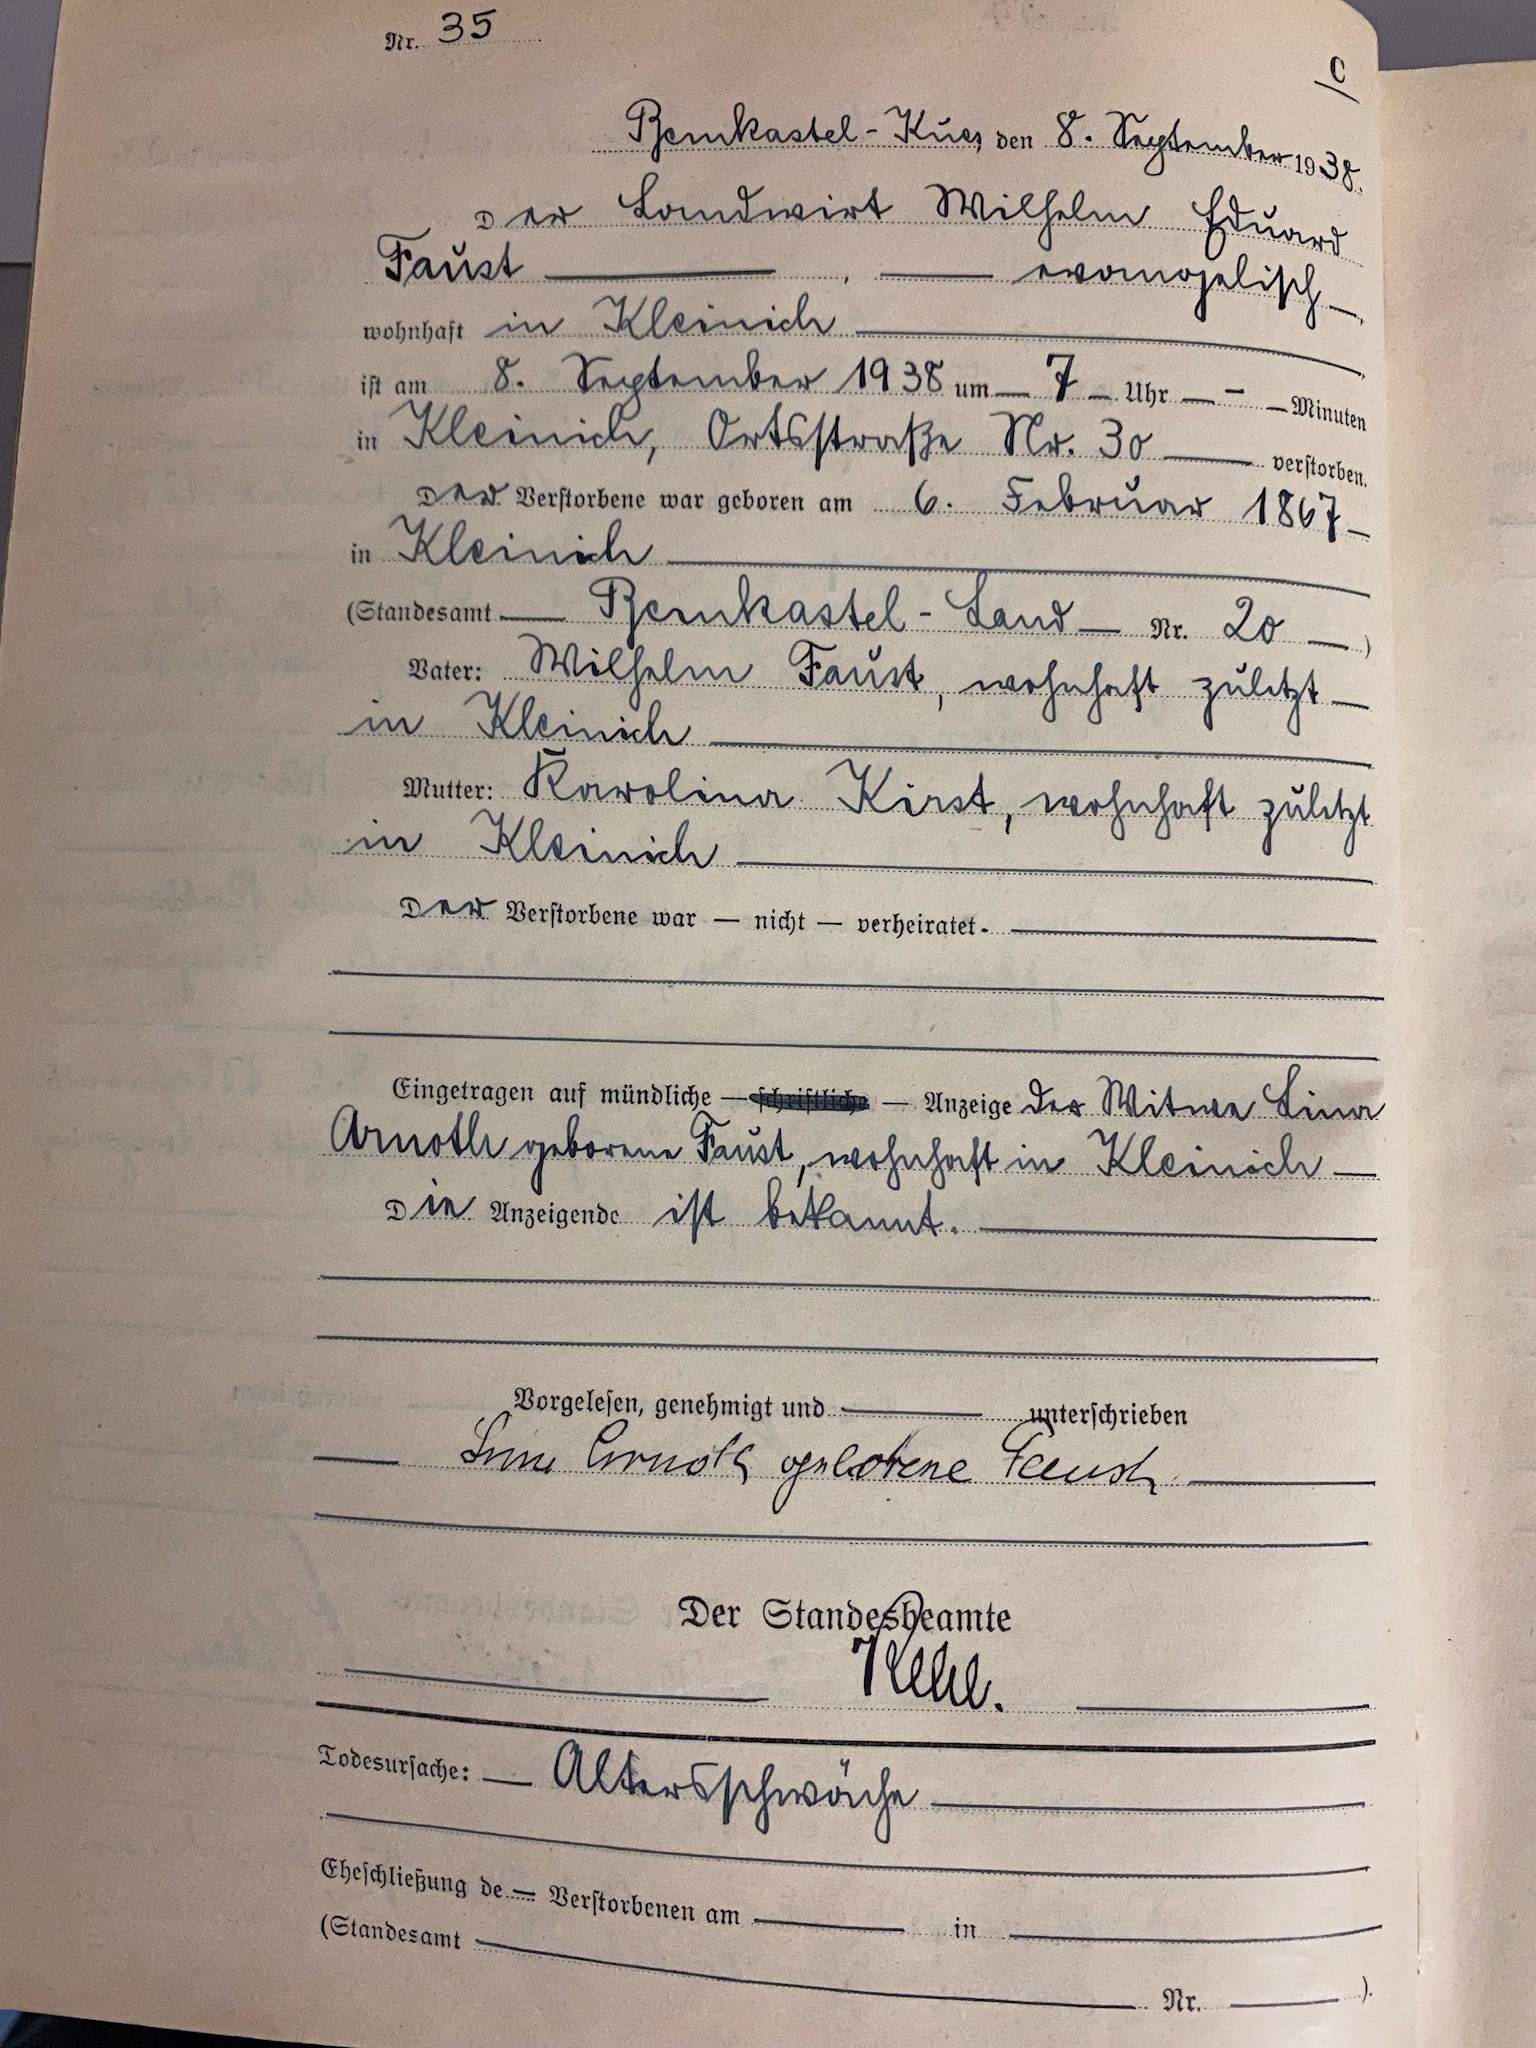 Nr. 35
C
Bernkastel-Kues, den 8. September 1938.
Der Landwirt Wilhelm Eduard
Faust ———— , —— evangelisch —,
wohnhaft in Kleinich ————,
ist am 8. September 1938 um — 7 — Uhr — - — Minuten
in Kleinich, Ortsstraße Nr. 30 —— verstorben.
Der Verstorbene war geboren am 6. Februar 1867 —
in Kleinich ————
(Standesamt — Bernkastel-Land — Nr. 20 — )
Vater: Wilhelm Faust, wohnhaft zuletzt —
in Kleinich ————
Mutter: Karolina Kirst, wohnhaft zuletzt
in Kleinich ————
Der Verstorbene war — nicht — verheiratet. ————
Eingetragen auf mündliche — schriftliche — Anzeige der Witwe Lina
Arnoth geborene Faust, wohnhaft in Kleinich —
Die Anzeigende ist bekannt. ————
Vorgelesen, genehmigt und —— unterschrieben
—— Lina Arnoth geborene Faust ——
Der Standesbeamte
Todesursache: — Altersschwäche ————
Eheschließung de — Verstorbenen am —— in ————
(Standesamt ———— Nr. —— ).